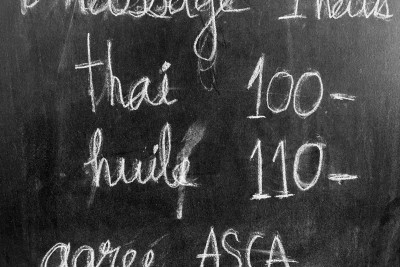 Massage 1 heures
thai 100-
huile 110-
agrée ASCA